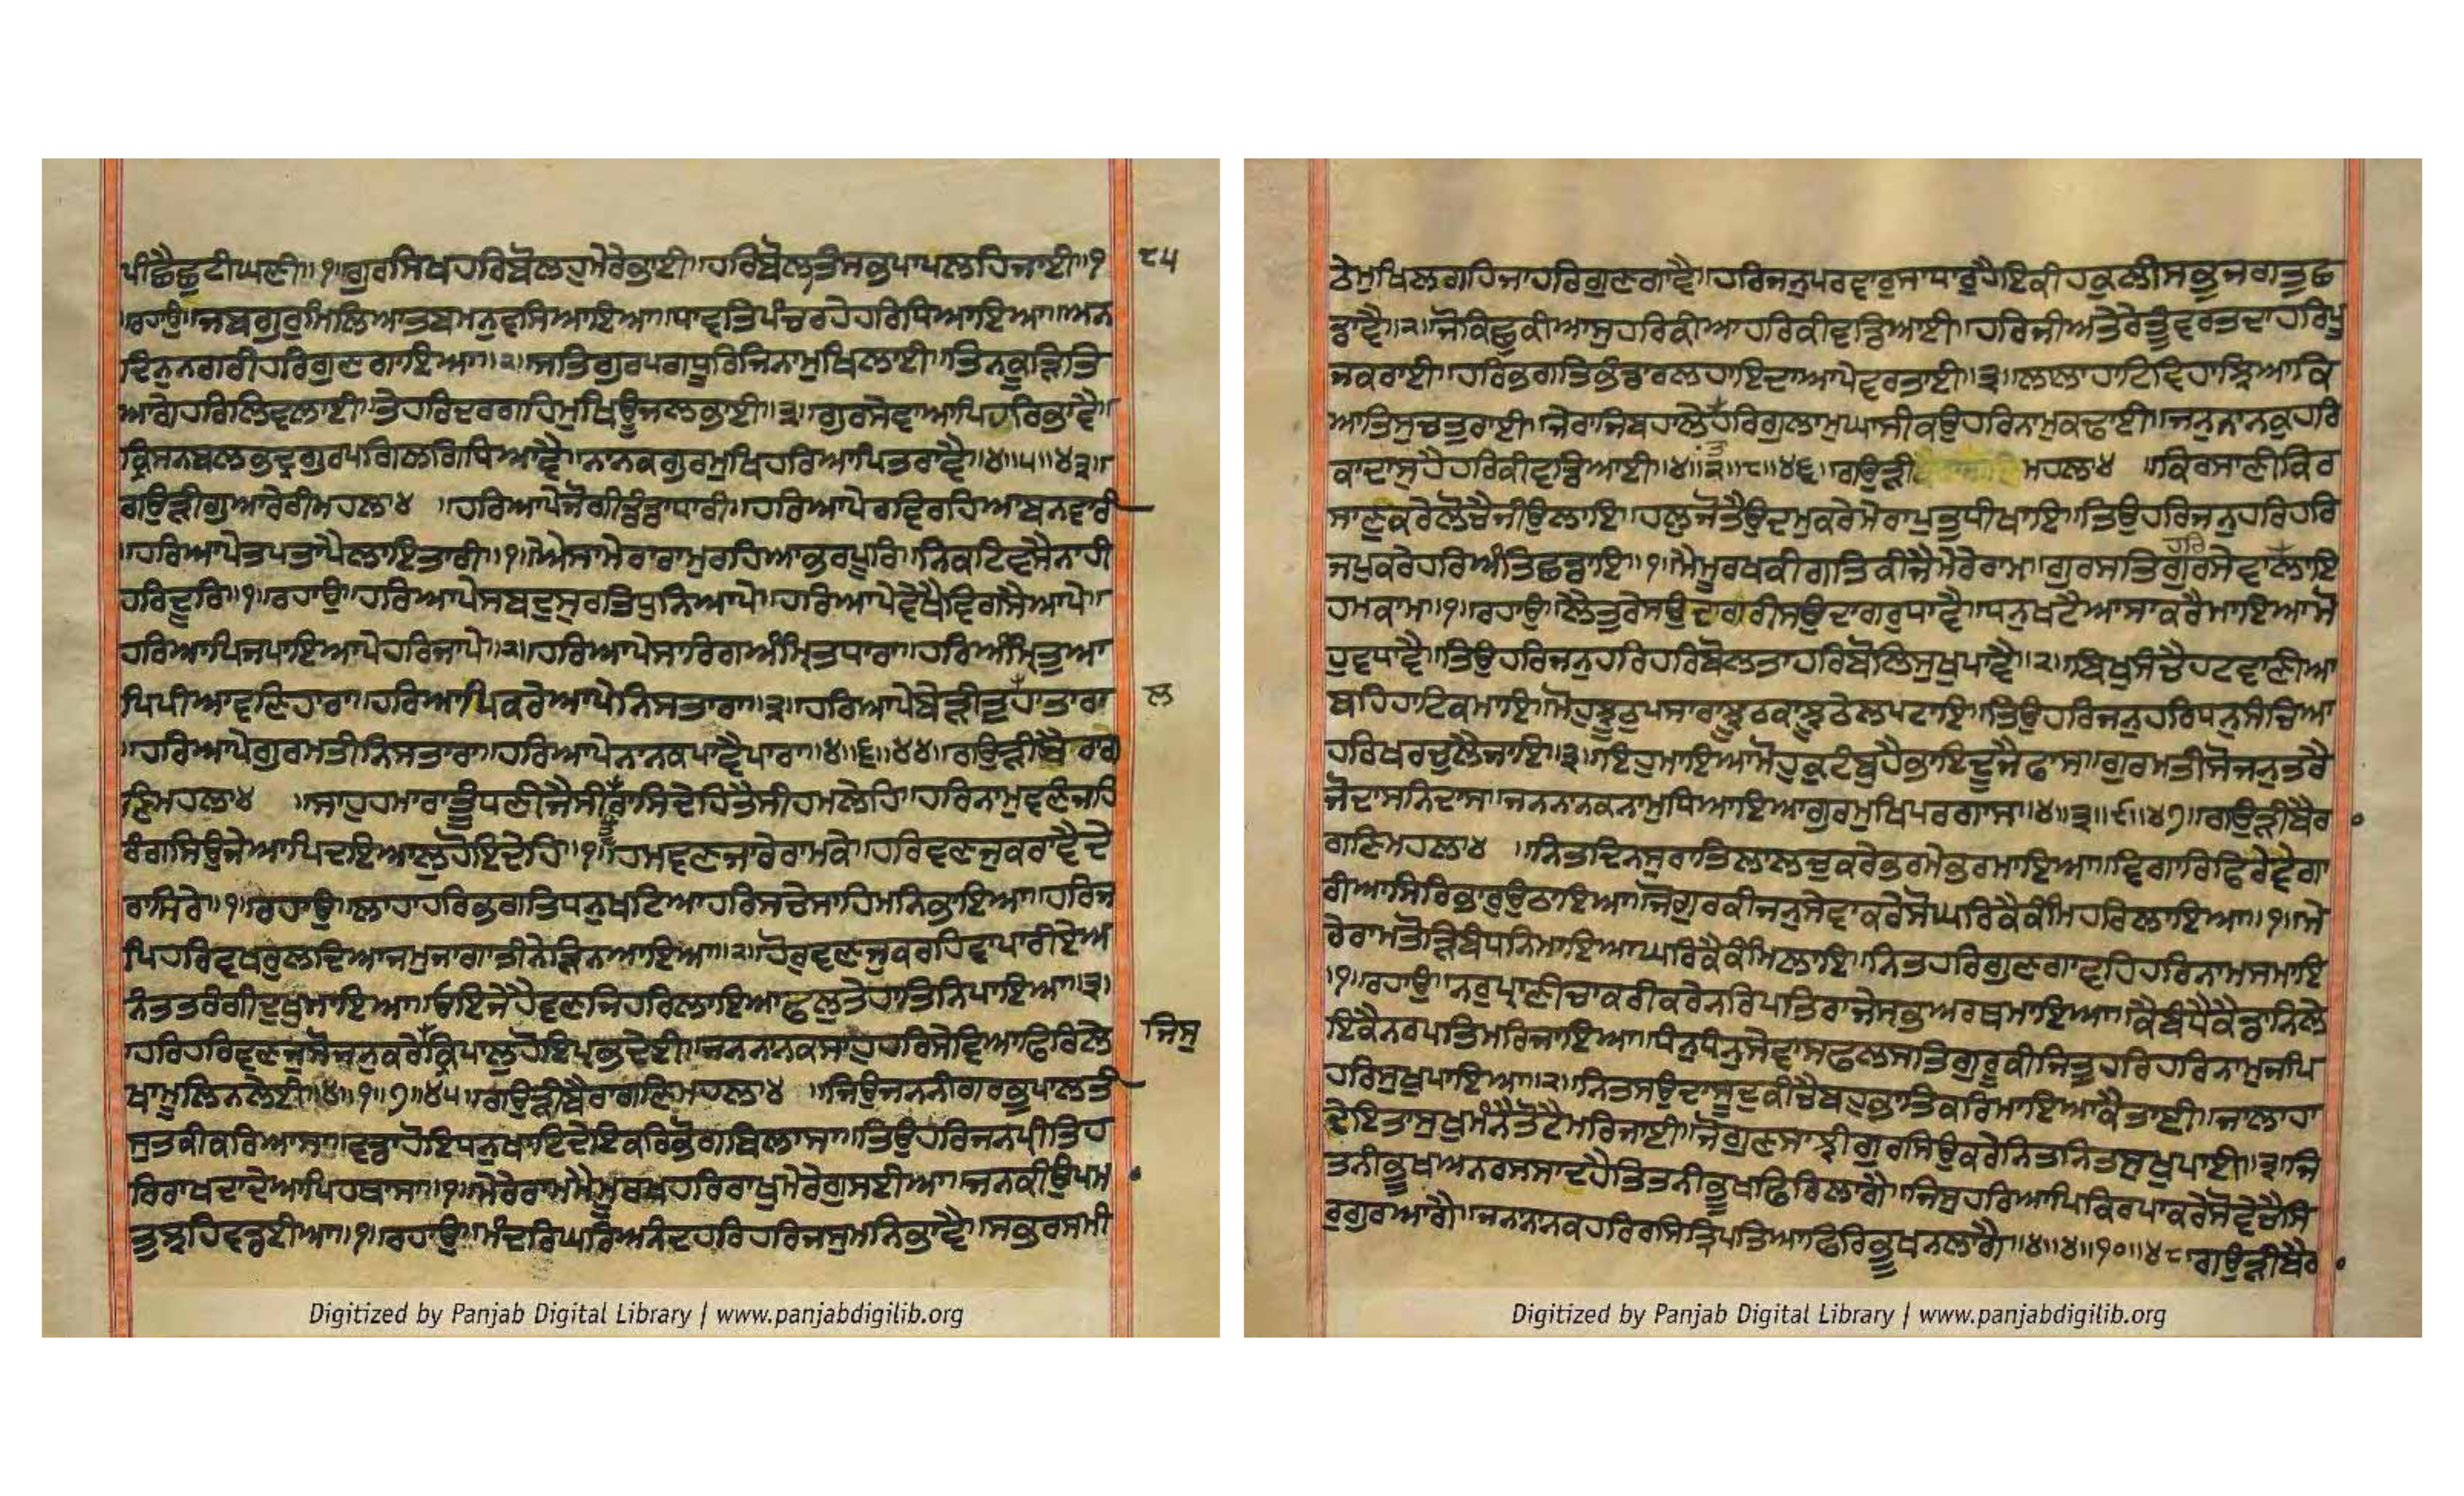 ਪੀਛੈਛੁਟੀਘਣੀ॥੧॥ਗੁਰਸਿਖਹਰਿਬੋਲਹੁਮੇਰੇਭਾਈ॥ਹਰਿਬੋਲਤਿਸਭਪਾਪਲਹਿਜਾਈ॥੧
॥ਰਹਾਉ॥ਜਬਗੁਰੁਮਿਲਿਆਤਬਮਨੁਵਸਿਆਇਆ॥ਧਾਵਤਿਪੰਚਰਹੇਹਰਿਧਿਆਇਆ॥ਅਨ
ਦਿਨੁਨਗਰੀਹਰਿਗੁਣਗਾਇਆ॥੨॥ਸਤਿਗੁਰਪਗਧੂਰਿਜਿਨਾਮੁਖਿਲਾਈ॥ਤਿਨਕੂੜਿਤਿ
ਆਗੇਹਰਿਲਿਵਲਾਈ॥ਤੇਹਰਿਦਰਗਹਿਮੁਖਿਊਜਲਭਾਈ॥੩॥ਗੁਰਸੇਵਾਆਪਿਹਰਿਭਾਵੈ॥
ਕ੍ਰਿਸਨਬਲਭਦ੍ਰੁਗੁਰਪਗਿਲਗਿਧਿਆਵੈ॥ਨਾਨਕਗੁਰਮੁਖਿਹਰਿਆਪਿਤਰਾਵੈ॥੪॥੫॥੪੩॥
ਗਉੜੀਗੁਆਰੇਰੀਮਹਲਾ੪ ॥ਹਰਿਆਪੇਜੋਗੀਡੰਡਾਧਾਰੀ॥ਹਰਿਆਪੇਰਵਿਰਹਿਆਬਨਵਾਰੀ
॥ਹਰਿਆਪੇਤਪਤਾਪੈਲਾਇਤਾਰੀ॥੧॥ਐਸਾਮੇਰਾਰਾਮੁਰਹਿਆਭਰਪੂਰਿ॥ਨਿਕਟਿਵਸੈਨਾਹੀ
ਹਰਿਦੂਰਿ॥੧॥ਰਹਾਉ॥ਹਰਿਆਪੇਸਬਦੁਸੁਰਤਿਧੁਨਿਆਪੇ॥ਹਰਿਆਪੇਵੇਖੈਵਿਗਸੈਆਪੇ॥
ਹਰਿਆਪਿਜਪਾਇਆਪੇਹਰਿਜਾਪੇ॥੨॥ਹਰਿਆਪੇਸਾਰਿਗਅੰਮ੍ਰਿਤਧਾਰਾ॥ਹਰਿਅੰਮ੍ਰਿਤੁਆ
ਪਿਪੀਆਵਣਿਹਾਰਾ॥ਹਰਿਆਪਿਕਰੇਆਪੇਨਿਸਤਾਰਾ॥੩॥ਹਰਿਆਪੇਬੇੜੀਤੁਹਾਤਾਰਾ
॥ਹਰਿਆਪੇਗੁਰਮਤੀਨਿਸਤਾਰਾ॥ਹਰਿਆਪੇਨਾਨਕਪਾਵੈਪਾਰਾ॥੪॥੬॥੪੪॥ਗਉੜੀਬੈਰਾਗ
ਣਿਮਹਲਾ੪ ॥ਸਾਹੁਹਮਾਰਾਤੂੰਧਣੀਜੈਸੀਰਾਸਿਦੇਹਿਤੈਸੀਹਮਲੇਹਿ॥ਹਰਿਨਾਮੁਵਣੰਜਹਿ
ਰੰਗਸਿਉਜੇਆਪਿਦਇਆਲੁਹੋਇਦੇਹਿ॥੧॥ਹਮਵਣਜਾਰੇਰਾਮਕੇ॥ਹਰਿਵਣਜੁਕਰਾਵੈਦੇ
ਰਾਸਿਰੇ॥੧॥ਰਹਾਉ॥ਲਾਹਾਹਰਿਭਗਤਿਧਨੁਖਟਿਆਹਰਿਸਚੇਸਾਹਿਮਨਿਭਾਇਆ॥ਹਰਿਜ
ਪਿਹਰਿਵਖਰੁਲਦਿਆਜਮੁਜਾਗਾਤੀਨੇੜਿਨਆਇਆ॥੨॥ਹੋਰੁਵਣਜੁਕਰਹਿਵਾਪਾਰੀਏਅ
ਨੰਤਤਰੰਗੀਦੁਖੁਮਾਇਆ॥ਓਇਜੇਹੈਵਣਜਿਹਰਿਲਾਇਆਫਲੁਤੇਹਾਤਿਨਿਪਾਇਆ॥੩॥
ਹਰਿਹਰਿਵਣਜੁਸੋਜਨੁਕਰੇਕ੍ਰਿਪਾਲੁਹੋਇਪ੍ਰਭੁਦੇਈ॥ਜਨਨਾਨਕਸਾਹੁਹਰਿਸੇਵਿਆਫਿਰਿਲੇ
ਖਾਮੂਲਿਨਲੇਈ॥੪॥੧॥੭॥੪੫॥ਗਉੜੀਬੈਰਾਗਣਿਮਹਲਾ੪ ॥ਜਿਉਜਨਨੀਗਰਭੁਪਾਲਤੀ
ਸੁਤਕੀਕਰਿਆਸਾ॥ਵਡਾਹੋਇਧਨੁਖਾਟਿਦੇਇਕਰਿਭੋਗਬਿਲਾਸਾ॥ਤਿਉਹਰਿਜਨਪ੍ਰੀਤਿਹ
ਰਿਰਾਖਦਾਦੇਆਪਿਹਥਾਸਾ॥੧॥ਮੇਰੇਰਾਮਮੈਮੂਰਖਹਰਿਰਾਖੁਮੇਰੇਗੁਸਈਆ॥ਜਨਕੀਉਪਮ
ਤੁਝਹਿਵਡਈਆ॥੧॥ਰਹਾਉ॥ਮੰਦਰਿਘਰਿਅਨੰਦੁਹਰਿਹਰਿਜਸੁਮਨਿਭਾਵੈ॥ਸਭਰਸਮੀ
੮੫
ਲ
ਜਿਸੁ
ਠੇਮੁਖਿਲਗਹਿਜਾਹਰਿਗੁਣਗਾਵੈ॥ਹਰਿਜਨੁਪਰਵਾਰੁਸਾਧਾਰੁਹੈਇਕੀਹਕੁਲੀਸਭੁਜਗਤੁਛ
ਡਾਵੈ॥੨॥ਜੋਕਿਛੁਕੀਆਸੁਹਰਿਕੀਆਹਰਿਕੀਵਡਿਆਈ॥ਹਰਿਜੀਅਤੇਰੇਤੂੰਵਰਤਦਾਹਰਿਪੂ
ਜਕਰਾਈ॥ਹਰਿਭਗਤਿਭੰਡਾਰਲਹਾਇਦਾਆਪੇਵਰਤਾਈ॥੩॥ਲਾਲਾਹਾਟਿਵਿਹਾਝਿਆਕਿ
ਆਤਿਸੁਚਤੁਰਾਈ॥ਜੇਰਾਜਿਬਹਾਲੇਹਰਿਗੁਲਾਮੁਘਾਸੀਕਉਹਰਿਨਾਮੁਕਢਾਈ॥ਜਨੁਨਾਨਕੁਹਰਿ
ਕਾਦਾਸੁਹੈਹਰਿਕੀਵਡਿਆਈ॥੪॥੨॥੮॥੪੬॥ਗਉੜੀ ਮਹਲਾ੪ ॥ਕਿਰਸਾਣੀਕਿਰ
ਸਾਣੁਕਰੇਲੋਚੈਜੀਉਲਾਇ॥ਹਲੁਜੋਤੈਉਦਮੁਕਰੇਮੇਰਾਪੁਤੁਧੀਖਾਇ॥ਤਿਉਹਰਿਜਨੁਹਰਿਹਰਿ
ਜਪੁਕਰੇਹਰਿਅੰਤਿਛਡਾਇ॥੧॥ਮੈਮੂਰਖਕੀਗਤਿਕੀਜੈਮੇਰੇਰਾਮ॥ਗੁਰਸਤਿਗੁਰਸੇਵਾਲਾਇ
ਹਮਕਾਮ॥੧॥ਰਹਾਉ॥ਲੈਤੁਰੇਸਉਦਾਗਰੀਸਉਦਾਗਰੁਧਾਵੈ॥ਧਨੁਖਟੈਆਸਾਕਰੈਮਾਇਆਮੋ
ਹੁਵਧਾਵੈ॥ਤਿਉਹਰਿਜਨੁਹਰਿਹਰਿਬੋਲਤਾਹਰਿਬੋਲਿਸੁਖੁਪਾਵੈ॥੨॥ਬਿਖੁਸੰਚੈਹਟਵਾਣੀਆ
ਬਹਿਹਾਟਿਕਮਾਇ॥ਮੋਹਝੂਠੁਪਸਾਰਾਝੂਠਕਾਝੂਠੇਲਪਟਾਇ॥ਤਿਉਹਰਿਜਨੁਹਰਿਧਨੁਸੰਚਿਆ
ਹਰਿਖਰਚੁਲੈਜਾਇ॥੩॥ਇਹੁਮਾਇਆਮੋਹੁਕੁਟੰਬੁਹੈਭਾਇਦੂਜੈਫਾਸ॥ਗੁਰਮਤੀਸੋਜਨੁਤਰੈ
ਜੋਦਾਸਨਿਦਾਸ॥ਜਨਨਾਨਕਨਾਮੁਧਿਆਇਆਗੁਰਮੁਖਿਪਰਗਾਸ॥੪॥੩॥੯॥੪੭॥ਗਉੜੀਬੈਰ
ਗਣਿਮਹਲਾ੪ ॥ਨਿਤਦਿਨਸੁਰਾਤਿਲਾਲਚੁਕਰੇਭਰਮੇਭਰਮਾਇਆ॥ਵੇਗਾਰਿਫਿਰੈਵੇਗਾ
ਰੀਆਸਿਰਿਭਾਰੁਉਠਾਇਆ॥ਜੋਗੁਰਕੀਜਨੁਸੇਵਾਕਰੇਸੋਘਰਿਕੈਕੰਮਿਹਰਿਲਾਇਆ॥੧॥ਮੇ
ਰੇਰਾਮਤੋੜਿਬੰਧਨਮਾਇਆਘਰਿਕੈਕੰਮਿਲਾਇ॥ਨਿਤਹਰਿਗੁਣਗਾਵਹਿਹਰਿਨਾਮਸਮਾਇ
॥੧॥ਰਹਾਉ॥ਨਰੁਪ੍ਰਾਣੀਚਾਕਰੀਕਰੇਨਰਪਤਿਰਾਜੇਸਭਅਰਥਮਾਇਆ॥ਕੈਬੰਧੈਕੈਡਾਨਿਲੇ
ਇਕੈਨਰਪਤਿਮਰਿਜਾਇਆ॥ਧੰਨੁਧਨੁਸੇਵਾਸਫਲਸਤਿਗੁਰੂਕੀਜਿਤੁਹਰਿਹਰਿਨਾਮੁਜਪਿ
ਹਰਿਸੁਖੁਪਾਇਆ॥੨॥ਨਿਤਸਉਦਾਸੂਦੁਕੀਚੈਬਹੁਭਾਤਿਕਰਿਮਾਇਆਕੈਤਾਈ॥ਜਾਲਾਹਾ
ਦੇਇਤਾਸੁਖੁਮੰਨੈਤੋਟੈਮਰਿਜਾਈ॥ਜੋਗੁਣਸਾਝੀਗੁਰਸਿਉਕਰੇਨਿਤਨਿਤਸੁਖੁਪਾਈ॥੩॥ਜਿ
ਤਨੀਭੂਖਅਨਰਸਸਾਦਹੈਤਿਤਨੀਭੂਖਫਿਰਿਲਾਗੈ॥ਜਿਸੁਹਰਿਆਪਿਕਿਰਪਾਕਰੇਸੋਵੇਚੈਸਿ
ਰੁਗੁਰਆਗੈ॥ਜਨਨਾਨਕਹਰਿਰਸਿਤ੍ਰਿਪਤਿਆਫਿਰਿਭੂਖਨਲਾਗੈ॥੪॥੪॥੧੦॥੪੮॥ਗਉੜੀਬੈਰ
Digitized by Panjab Digital Library | www.panjabdigilib.org
Digitized by Panjab Digital Library | www.panjabdigilib.org